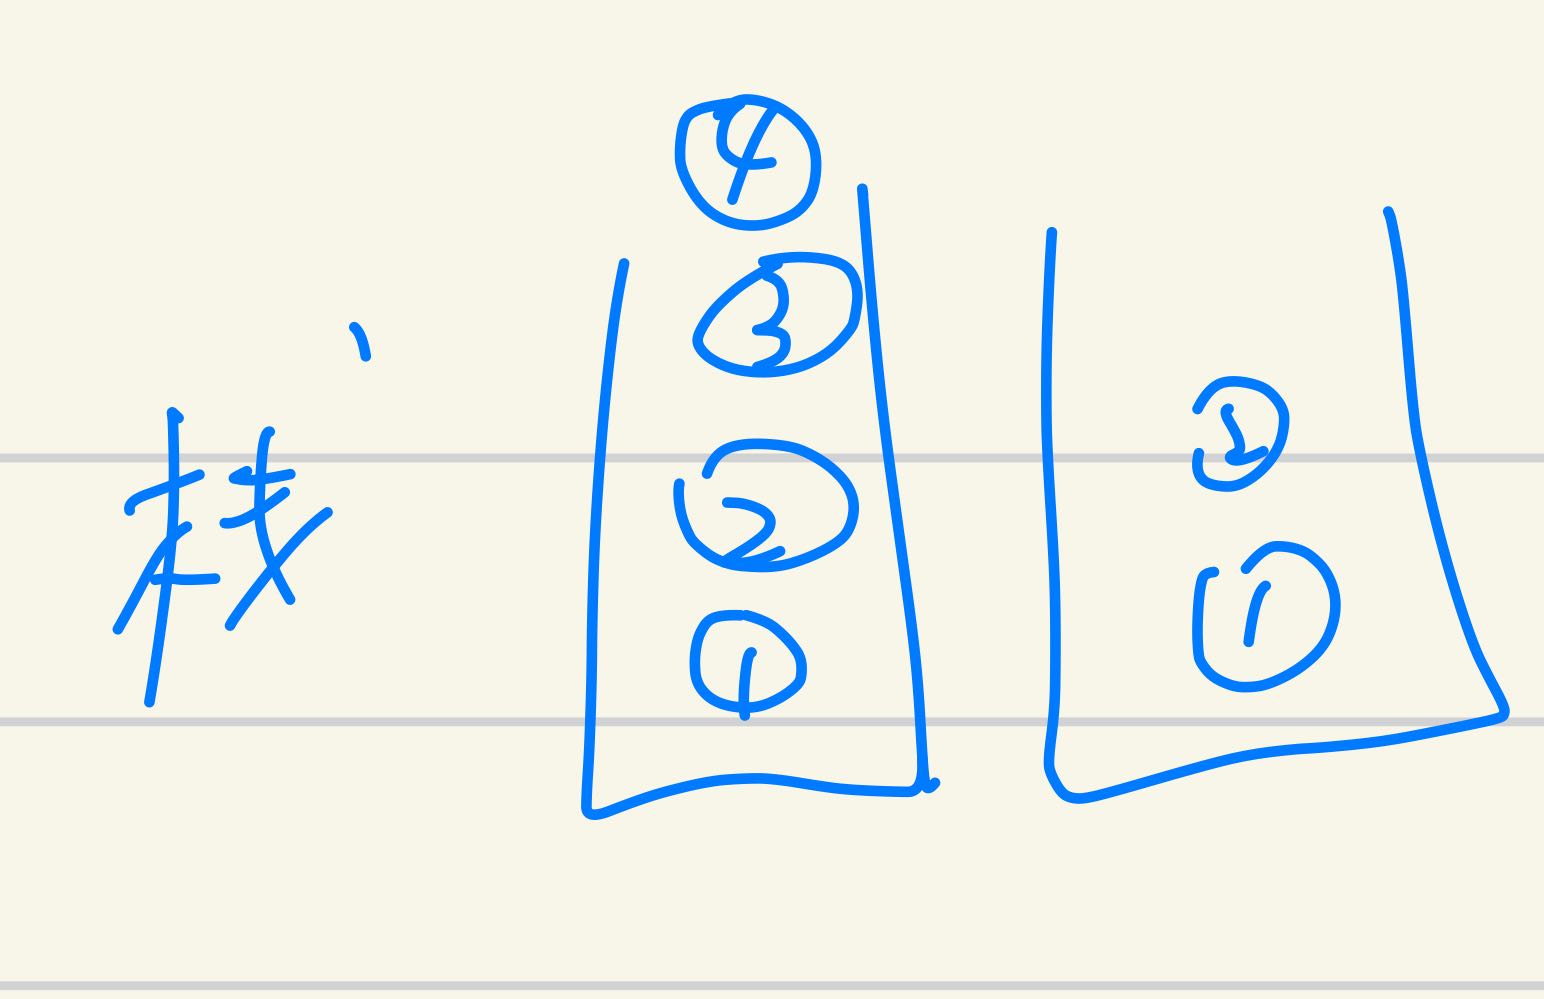 栈
④
③
②
①
②
①